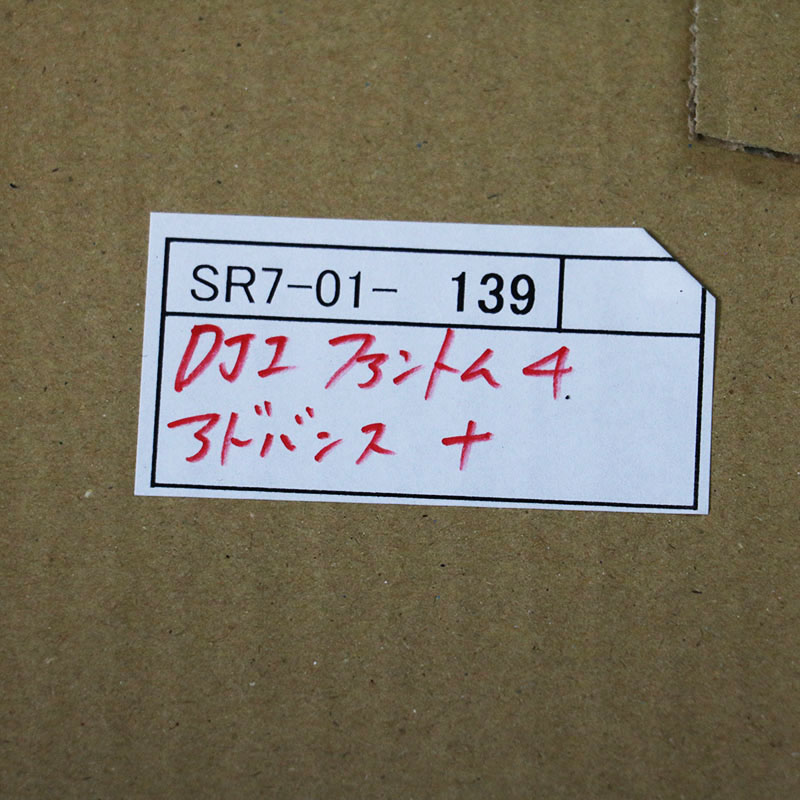 SR7-01- 139
DJI ファントム 4
アドバンス +